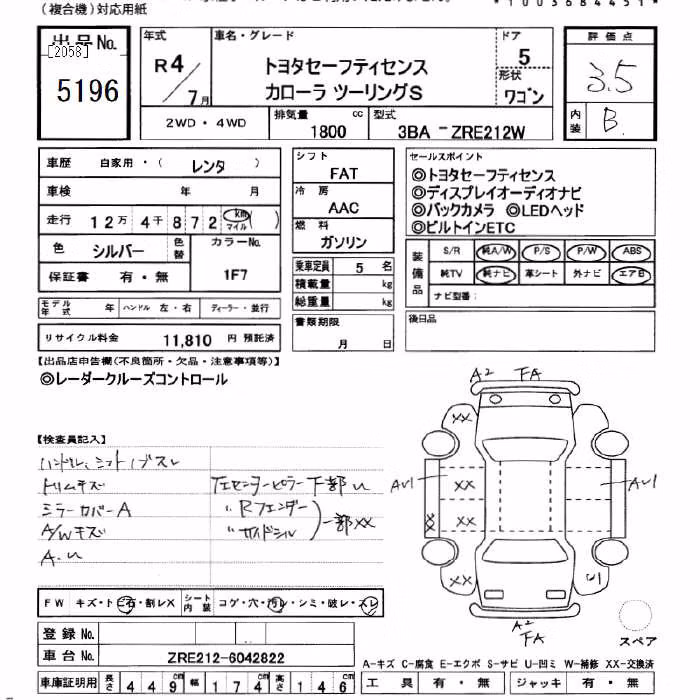 (複合機)対応用紙
*1003684451*
出品No.
[2058]
5196
年式
R4/7月
車名・グレード
トヨタセーフティセンス
カローラ ツーリングS
ドア
5
形状
ワゴン
評価点
3.5
内装
B
2WD・4WD
排気量
1800 cc
型式
3BA-ZRE212W
車歴 自家用・( レンタ )
車検 年 月
走行 12万4千872 km マイル ( )
色 シルバー 色替 カラーNo.
保証書 有・無 1F7
モデル年式 年 ハンドル 左・右 ディーラー・並行
リサイクル料金 11,810 円 預託済
シフト
FAT
冷房
AAC
燃料
ガソリン
乗車定員 5 名
積載量 kg
総重量 kg
書類期限
月 日
セールスポイント
◎トヨタセーフティセンス
◎ディスプレイオーディオナビ
◎バックカメラ ◎LEDヘッド
◎ビルトインETC
装備品
S/R 純A/W P/S P/W ABS
純TV 純ナビ 革シート 外ナビ エアB
ナビ型番:
後日品
【出品店申告欄(不良箇所・欠品・注意事項等)】
◎レーダークルーズコントロール
【検査員記入】
ハンドル、シフトノブスレ
トリムキズ
ミラーカバーA
A/Wキズ
A.U
左センターピラー下部U
〃 Rフェンダー
〃 サイドシル
一部XX
A2 FA
XX
AU1 XX AU1
XX XX
XX U1
A2
FA
スペア
FW キズ・トビ石・割レX シート内装 コゲ・穴・汚レ・シミ・破レ・スレ
登録No.
車台No. ZRE212-6042822
車庫証明用 長さ 449cm 幅 174cm 高さ 146cm
A-キズ C-腐食 E-エクボ S-サビ U-凹ミ W-補修 XX-交換済
工具 有・無 ジャッキ 有・無